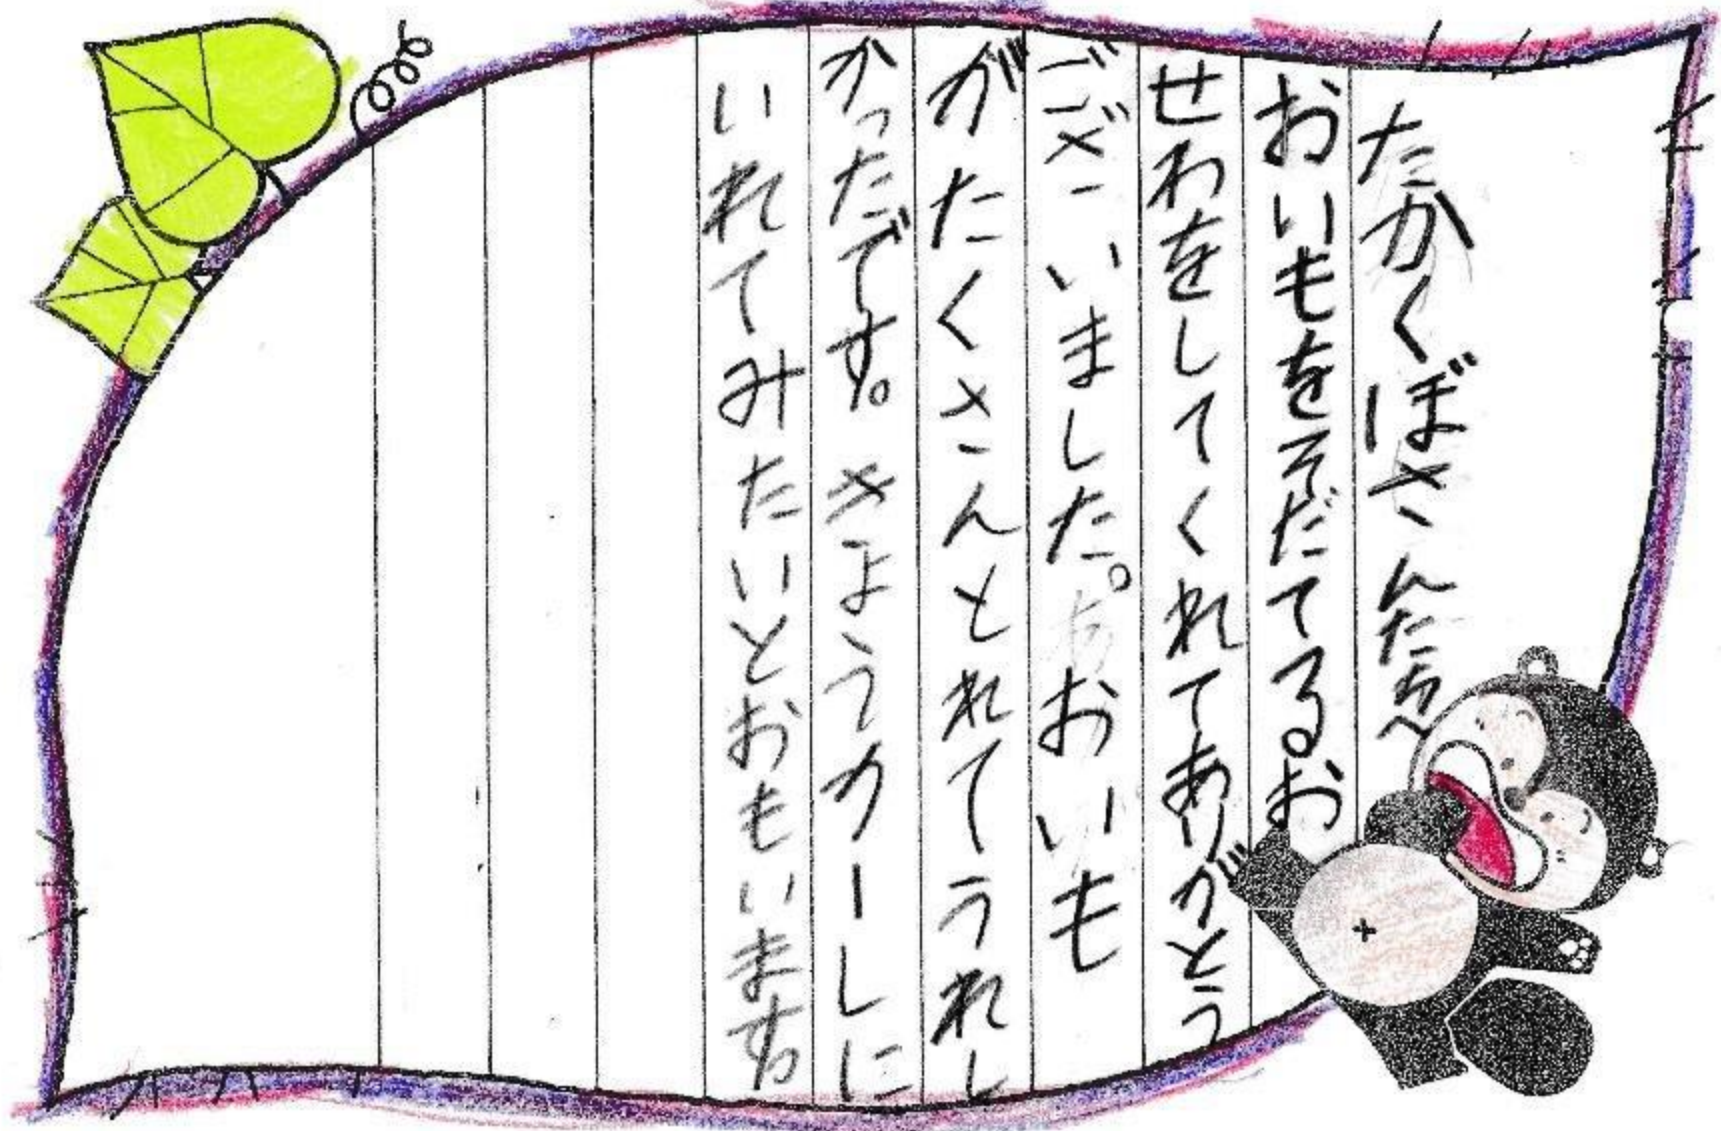 たかくぼさんたちへ
おいもをそだてるお
せわをしてくれてありがとう
ございました。おいも
がたくさんとれてうれし
かったです。きょうカーしに
いれてみたいとおもいます。